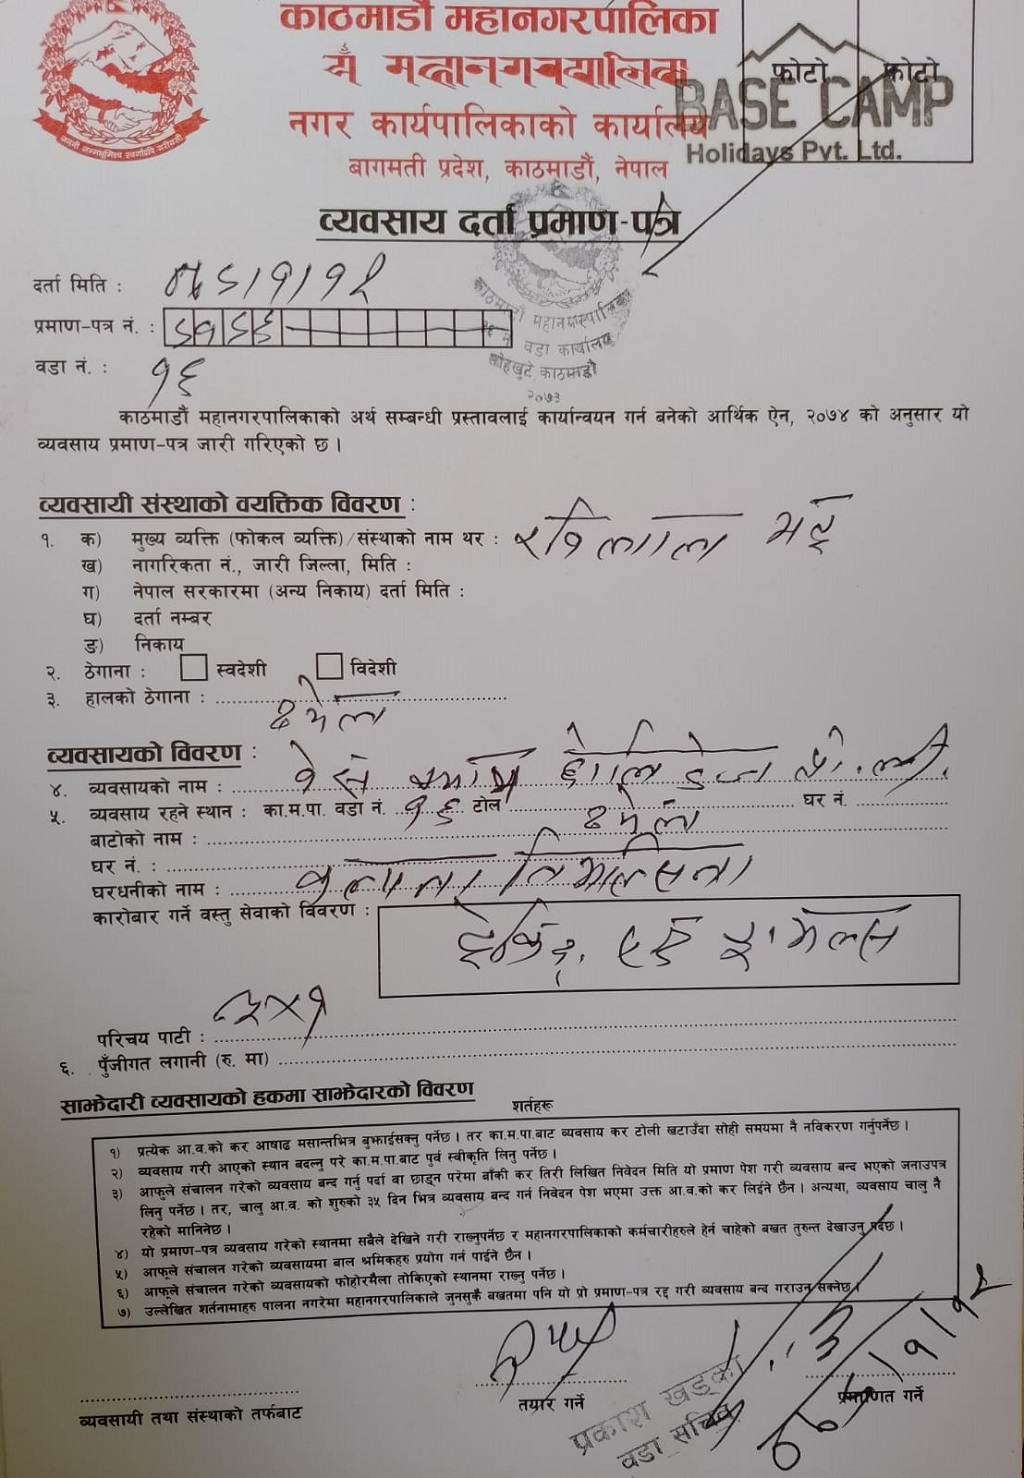 काठमाडौं महानगरपालिका
नगर कार्यपालिकाको कार्यालय
बागमती प्रदेश, काठमाडौं, नेपाल
फोटो फोटो
BASE CAMP
Holidays Pvt. Ltd.
व्यवसाय दर्ता प्रमाण-पत्र
दर्ता मिति :
प्रमाण-पत्र नं. :
वडा नं. : १६
काठमाडौं महानगरपालिका
१६ नं. वडा कार्यालय
सोह्रखुट्टे, काठमाडौं
२०७३
काठमाडौं महानगरपालिकाको अर्थ सम्बन्धी प्रस्तावलाई कार्यान्वयन गर्न बनेको आर्थिक ऐन, २०७४ को अनुसार यो
व्यवसाय प्रमाण-पत्र जारी गरिएको छ ।
व्यवसायी संस्थाको वयक्तिक विवरण :
१. क) मुख्य व्यक्ति (फोकल व्यक्ति)/संस्थाको नाम थर : रविलाल भट्ट
ख) नागरिकता नं., जारी जिल्ला, मिति :
ग) नेपाल सरकारमा (अन्य निकाय) दर्ता मिति :
घ) दर्ता नम्बर
ङ) निकाय
२. ठेगाना : स्वदेशी विदेशी
३. हालको ठेगाना : ठमेल
व्यवसायको विवरण :
४. व्यवसायको नाम : वेस क्याम्प होलिडेज प्रा.ली.
५. व्यवसाय रहने स्थान : का.म.पा. वडा नं. १६ टोल ठमेल घर नं.
बाटोको नाम :
घर नं. :
घरधनीको नाम : कल्पना तिमल्सिना
कारोबार गर्ने वस्तु सेवाको विवरण : ट्रेकिङ्ग, एण्ड ट्राभल्स
परिचय पाटी : २x१
६. पुँजीगत लगानी (रु. मा)
साझेदारी व्यवसायको हकमा साझेदारको विवरण
शर्तहरू
१) प्रत्येक आ.व.को कर आषाढ मसान्तभित्र बुझाईसक्नु पर्नेछ । तर का.म.पा.बाट व्यवसाय कर टोली खटाउँदा सोही समयमा नै नविकरण गर्नुपर्नेछ ।
२) व्यवसाय गरी आएको स्थान बदल्नु परे का.म.पा.बाट पुर्व स्वीकृति लिनु पर्नेछ ।
३) आफुले संचालन गरेको व्यवसाय बन्द गर्नु पर्दा वा छाड्न परेमा बाँकी कर तिरी लिखित निवेदन मिति यो प्रमाण पेश गरी व्यवसाय बन्द भएको जनाउपत्र
लिनु पर्नेछ । तर, चालु आ.व. को शुरुको ३५ दिन भित्र व्यवसाय बन्द गर्न निवेदन पेश भएमा उक्त आ.व.को कर लिईने छैन । अन्यथा, व्यवसाय चालु नै
रहेको मानिनेछ ।
४) यो प्रमाण-पत्र व्यवसाय गरेको स्थानमा सबैले देखिने गरी राख्नुपर्नेछ र महानगरपालिकाको कर्मचारीहरुले हेर्न चाहेको बखत तुरुन्त देखाउनु पर्दछ ।
५) आफूले संचालन गरेको व्यवसायमा बाल श्रमिकहरु प्रयोग गर्न पाईने छैन ।
६) आफूले संचालन गरेको व्यवसायको फोहोरमैला तोकिएको स्थानमा राख्नु पर्नेछ ।
७) उल्लेखित शर्तनामाहरु पालना नगरेमा महानगरपालिकाले जुनसुकै बखतमा पनि यो प्रो प्रमाण-पत्र रद्द गरी व्यवसाय बन्द गराउन सक्नेछ ।
व्यवसायी तथा संस्थाको तर्फबाट
तयार गर्ने
प्रमाणित गर्ने
प्रकाश खड्का
वडा सचिव